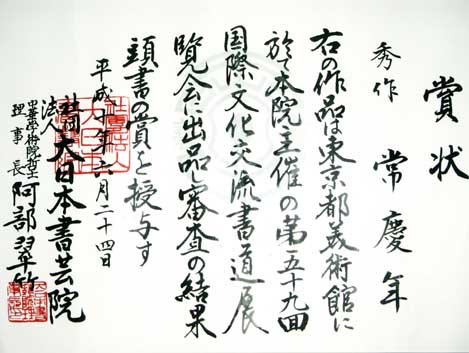 賞状
秀作 常慶年
右の作品は東京都美術館に
於て本院主催の第五十九回
国際文化交流書道展
覧会に出品し審査の結果
頭書の賞を授与す
平成十年六月二十四日
社団法人 大日本書芸院
理事長 阿部翠竹